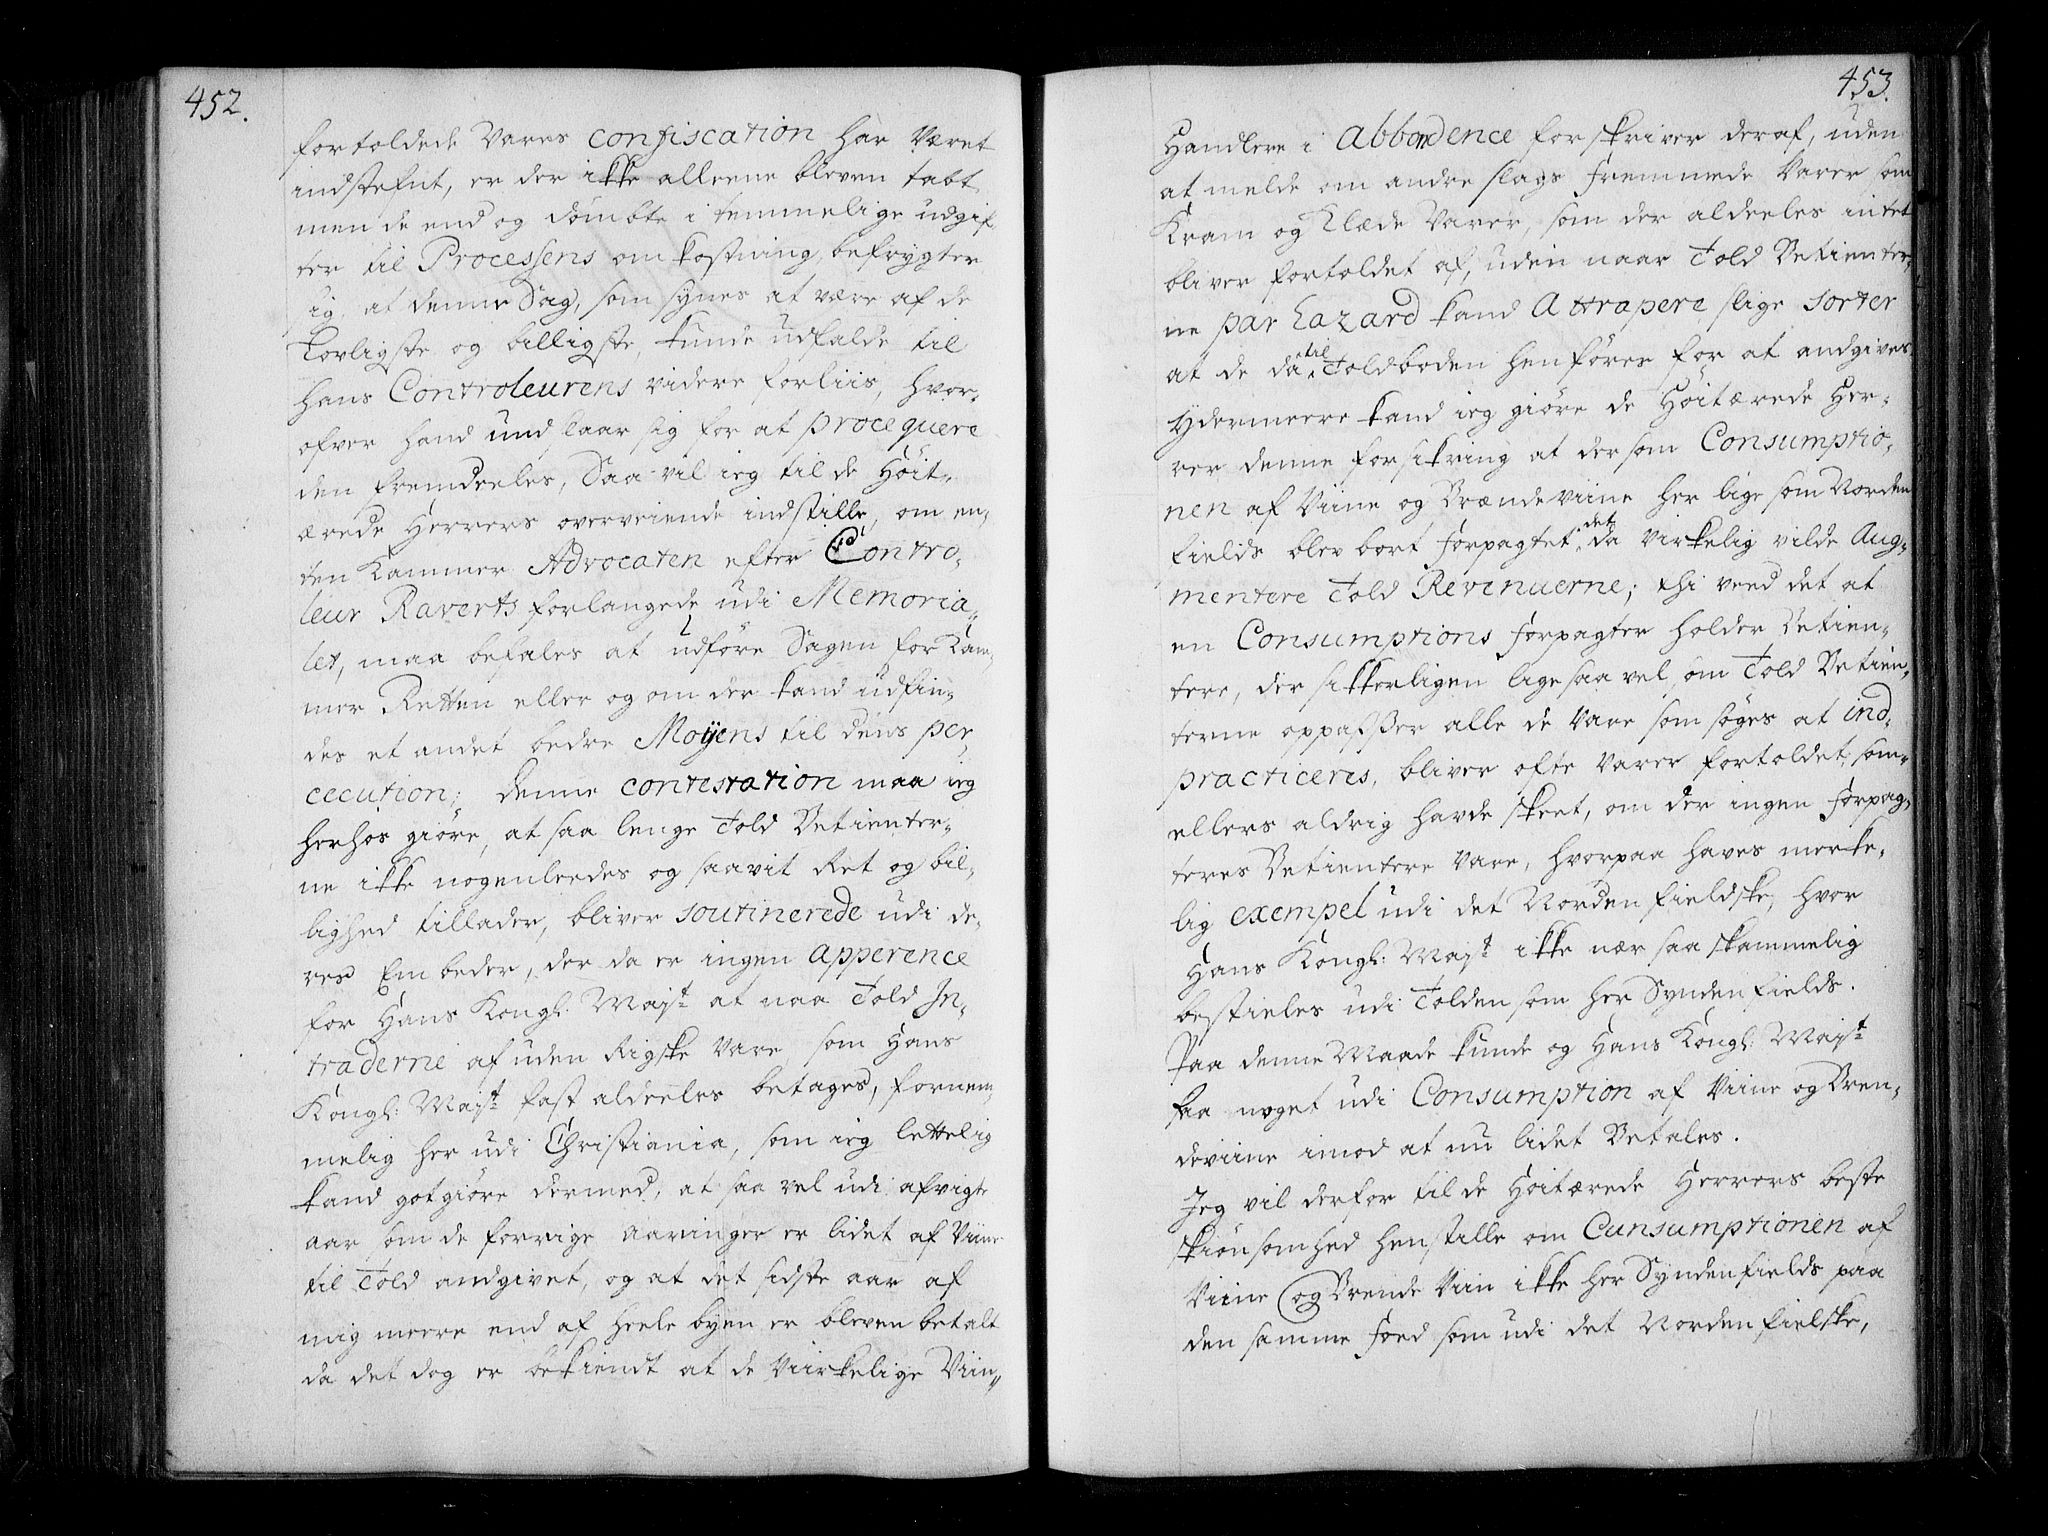 452.
fortoldede Vares confiscation har været
indstefnt, er der ikke alleene bleven tabt
men de end og dømbte i temmelige udgif-
ter til Processens omkostning, befrygter
ieg, at denne Sag, som synes at være af de
Lovligste og billigste, kunde udfalde til
hans Controleurens videre forliis, hvor-
ofver hand und slaar sig for at procequere
den fremdeeles, Saa vil ieg til de Høit-
ærede Herrers overveiende indstille, om en-
ten Kammer Advocaten efter Contro-
leur Raverts forlangede udi Memoria-
let, maa befales at udføre Sagen for Kam-
mer Retten eller og om der kand udfin-
des et andet bedre Moyens til dens per-
cecution; denne contestation maa ieg
herhos giøre, at saa lenge Told Betienter-
ne ikke nogenleedes og saavit Ret og bil-
lighed tillader, bliver soutinerede udi de-
res Embeder, der da er ingen apperence
for Hans Kongl: Majt at naa Told In-
traderne af uden Rigske Vare som Hans
Kongl: Majt fast aldeeles betages, fornem-
melig her udi Christiania, som ieg lettelig
kand gotgiøre dermed, at saa vel udi afvigte
aar som de forrige aaringer er lidet af Viine
til Told andgivet, og at det sidste aar af
mig meere end af heele byen er bleven betalt
da det dog er bekiendt at de Viirkelige Viin-
453.
Handlere i abbondence forskriver deraf, uden
at melde om andre slags fremmede Varer som
Kram og Klæde Varer, som der aldeeles intet
bliver fortoldet af, uden naar Told Betienter-
ne par hazard kand Attrapere slige sorter
at de da til Toldboden henføres for at andgives
Ydermeere kand ieg giøre de Høitærede Her-
rer denne forsikring at dersom Consumptio-
nen af Viine og Brændeviine her lige som Norden
fields blev bort forpagtet, det da virkelig vilde Aug-
mentere Told Revenuerne; thi veed det at
en Consumptions forpagter holder Betien-
tere, der sikkerligen lige saa vel som Told Betien-
terne oppasser alle de Vare som søges at ind-
practiceres, bliver ofte Varer fortoldet, som
ellers aldrig havde skeet, om der ingen forpag-
teres Betientere vare, hvorpaa haves merke-
lig exempel udi det Nordenfieldske, hvor
Hans Kongl: Majt ikke nær saa skammelig
bestieles udi Tolden som her Syndenfields.
Paa denne Maade kunde og Hans Kongl: Majt
faa noget udi Consumption af Viine og Bren-
deviine imod at nu lidet Betales.
Jeg vil derfor til de Høitærede Herrers beste
skiønsomhed henstille om Cunsumptionen af
Viine og Brende Viin ikke her Syndenfields paa
den samme foed som udi det Nordenfielske,